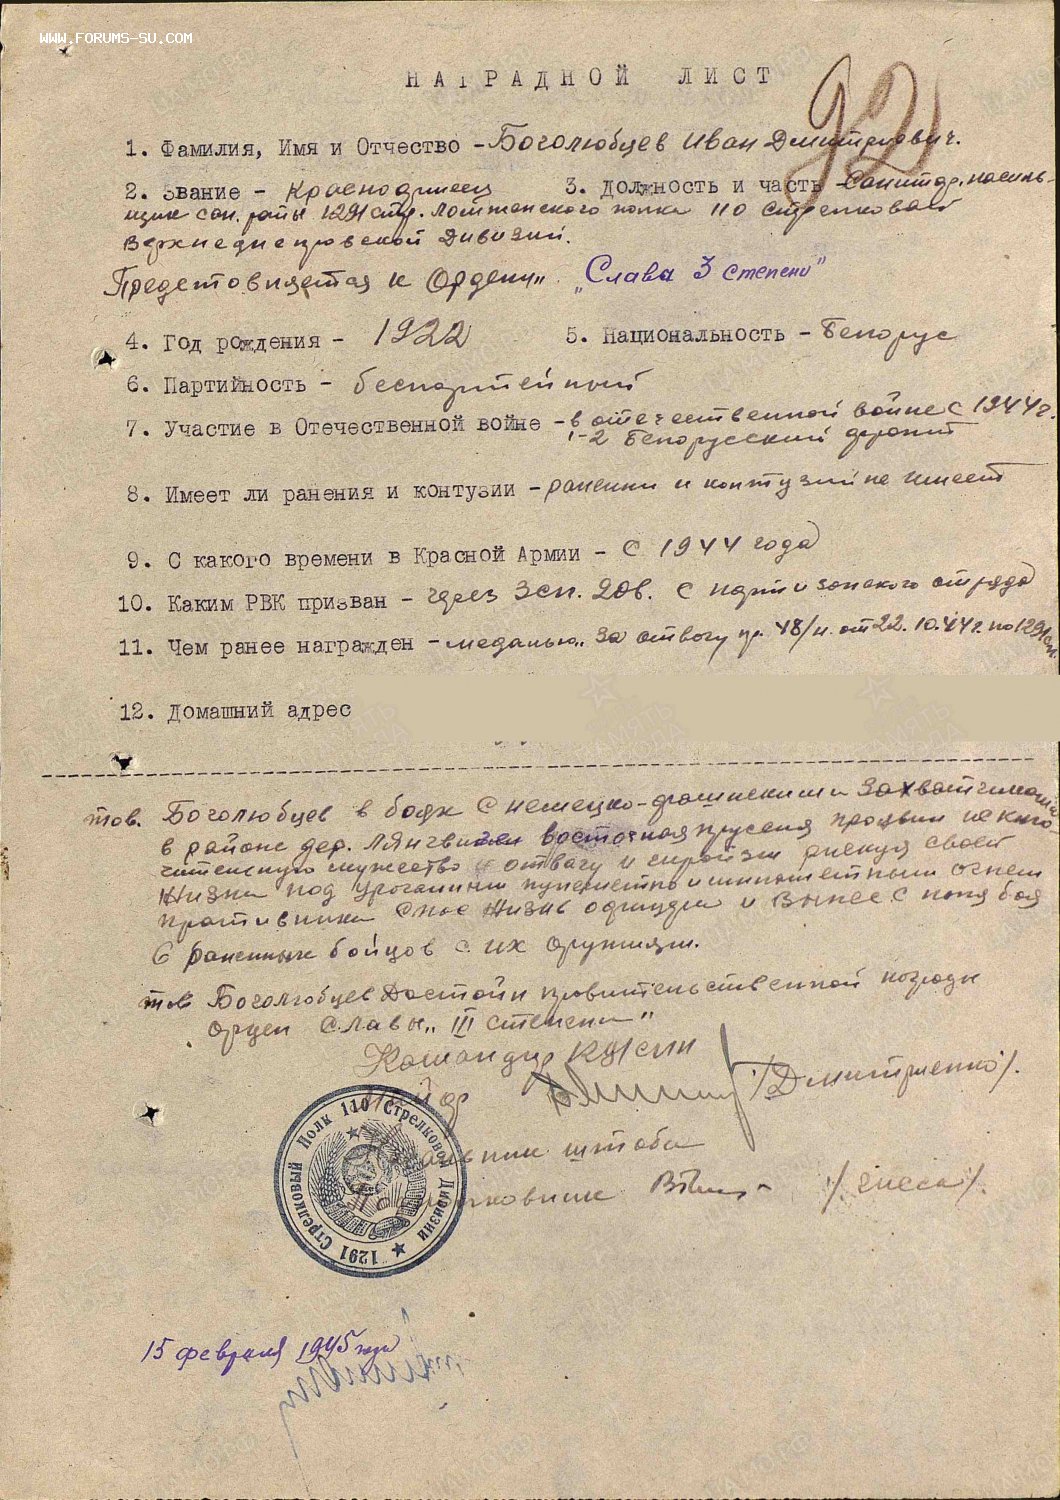 WWW.FORUMS-SU.COM
92
НАГРАДНОЙ ЛИСТ
1. Фамилия, Имя и Отчество - Боголюбцев Иван Дмитриевич.
2. Звание - Красноармеец 3. Должность и часть - Санитар, носиль-
щик сан. роты 1291 стр. полка 110 стрелковой
Верхнеднепровской Дивизии.
Предстовляется к Ордену „Слава 3 степени"
4. Год рождения - 1922 5. Национальность - Белорус
6. Партийность - беспартейный
7. Участие в Отечественной войне - в отечественной войне с 1944 г.
1-2 Белорусский фронт
8. Имеет ли ранения и контузии - ранении и контузий не имеет
9. С какого времени в Красной Армии - с 1944 года
10. Каким РВК призван - через Зсп. 208. с партизанского отряда
11. Чем ранее награжден - медалью „За отвогу пр. 48/н. от 22.10.44 г. по 1291 сп.
12. Домашний адрес
тов. Боголюбцев в боях с немецко-фашискими захватчиками
в районе дер. восточная пруссия проявил
мужество и отвагу и рискуя своей
жизни под ураганным и минометным огнем
противника спас жизнь офицера и вынес с поля боя
6 раненных бойцов с их оружиям.
тов Боголюбцев Достойн правительственной награды
орден Славы „III степени"
Командир 1291 сп
Майор /Дмитриенко/.
Начальник штаба
Подполковник
1291 Стрелковый Полк 110 Стрелковой Дивизии
15 февраля 1945 года